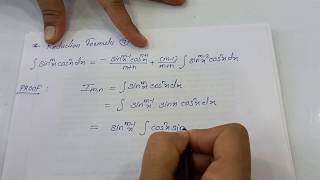 * Reduction Formula ①
∫ sinᵐx cosⁿx dx = − sinᵐ⁻¹x cosⁿ⁺¹x / m+n + (m−1) / m+n ∫ sinᵐ⁻²x cosⁿx dx
PROOF : Iₘ,ₙ = ∫ sinᵐx cosⁿx dx
= ∫ sinᵐ⁻¹x sinx cosⁿx dx
= sinᵐ⁻¹x ∫ cosⁿx sin